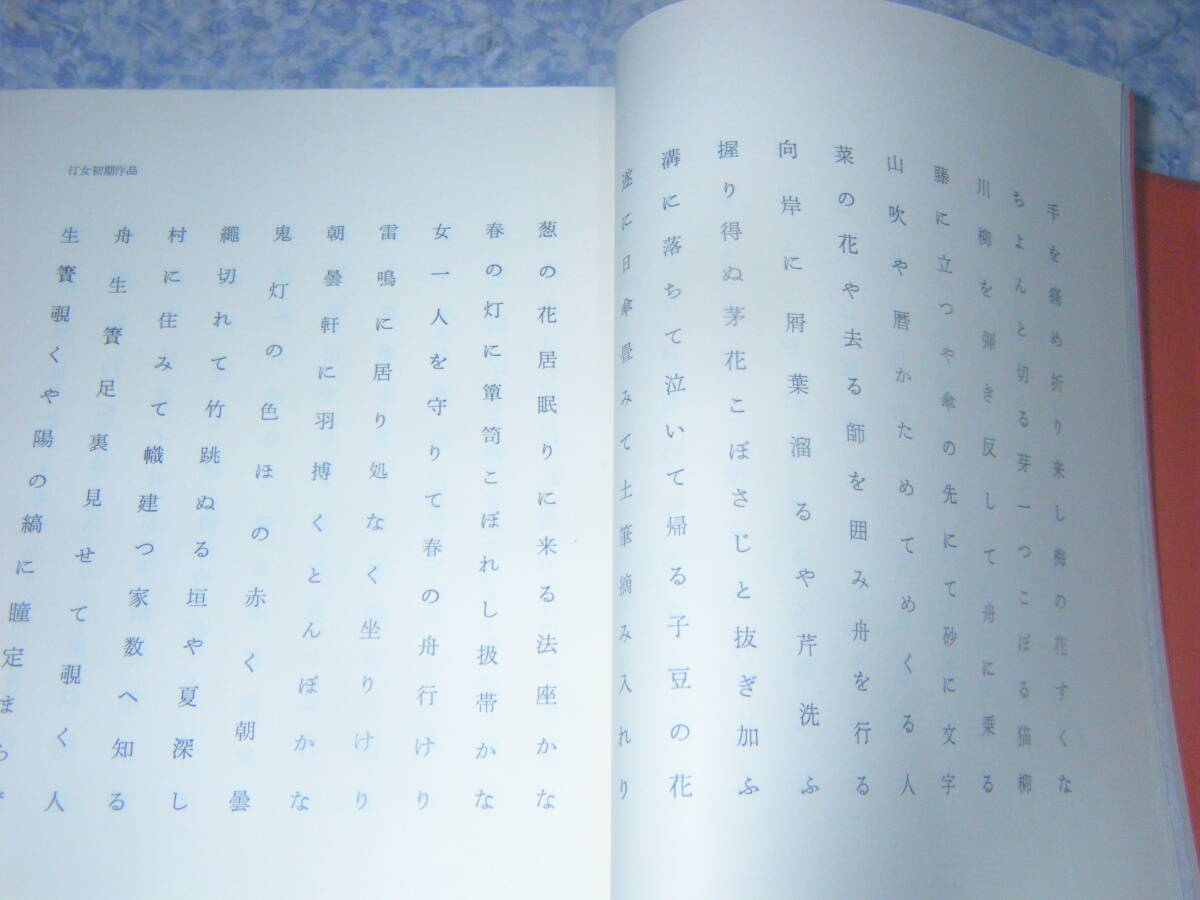 手を痛め折り来し梅の花すくな
ちよんと切る芽一つこぼる猫柳
川柳を弾き反して舟に乗る
藤に立つや傘の先にて砂に文字
山吹や暦かためてめくる人
菜の花や去る師を囲み舟を行る
向岸に屑葉溜るや芹洗ふ
握り得ぬ茅花こぼさじと抜ぎ加ふ
溝に落ちて泣いて帰る子豆の花
遂に日傘畳みて土筆摘み入れり
葱の花居眠りに来る法座かな
春の灯に簞笥こぼれし扱帯かな
女一人を守りて春の舟行けり
雷鳴に居り処なく坐りけり
朝曇軒に羽搏くとんぼかな
鬼灯の色ほの赤く朝曇
繩切れて竹跳ぬる垣や夏深し
村に住みて幟建つ家数へ知る
舟生簀足裏見せて覗く人
生簀覗くや陽の縞に瞳定まらず
汀女初期作品